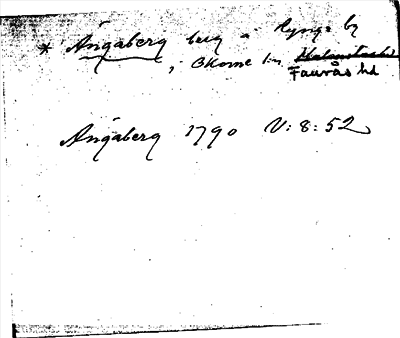 * Ängaberg berg å Lynga by
, Okome sn, Halmstads hd
Faurås hd
Ängaberg 1790 V: 8: 52